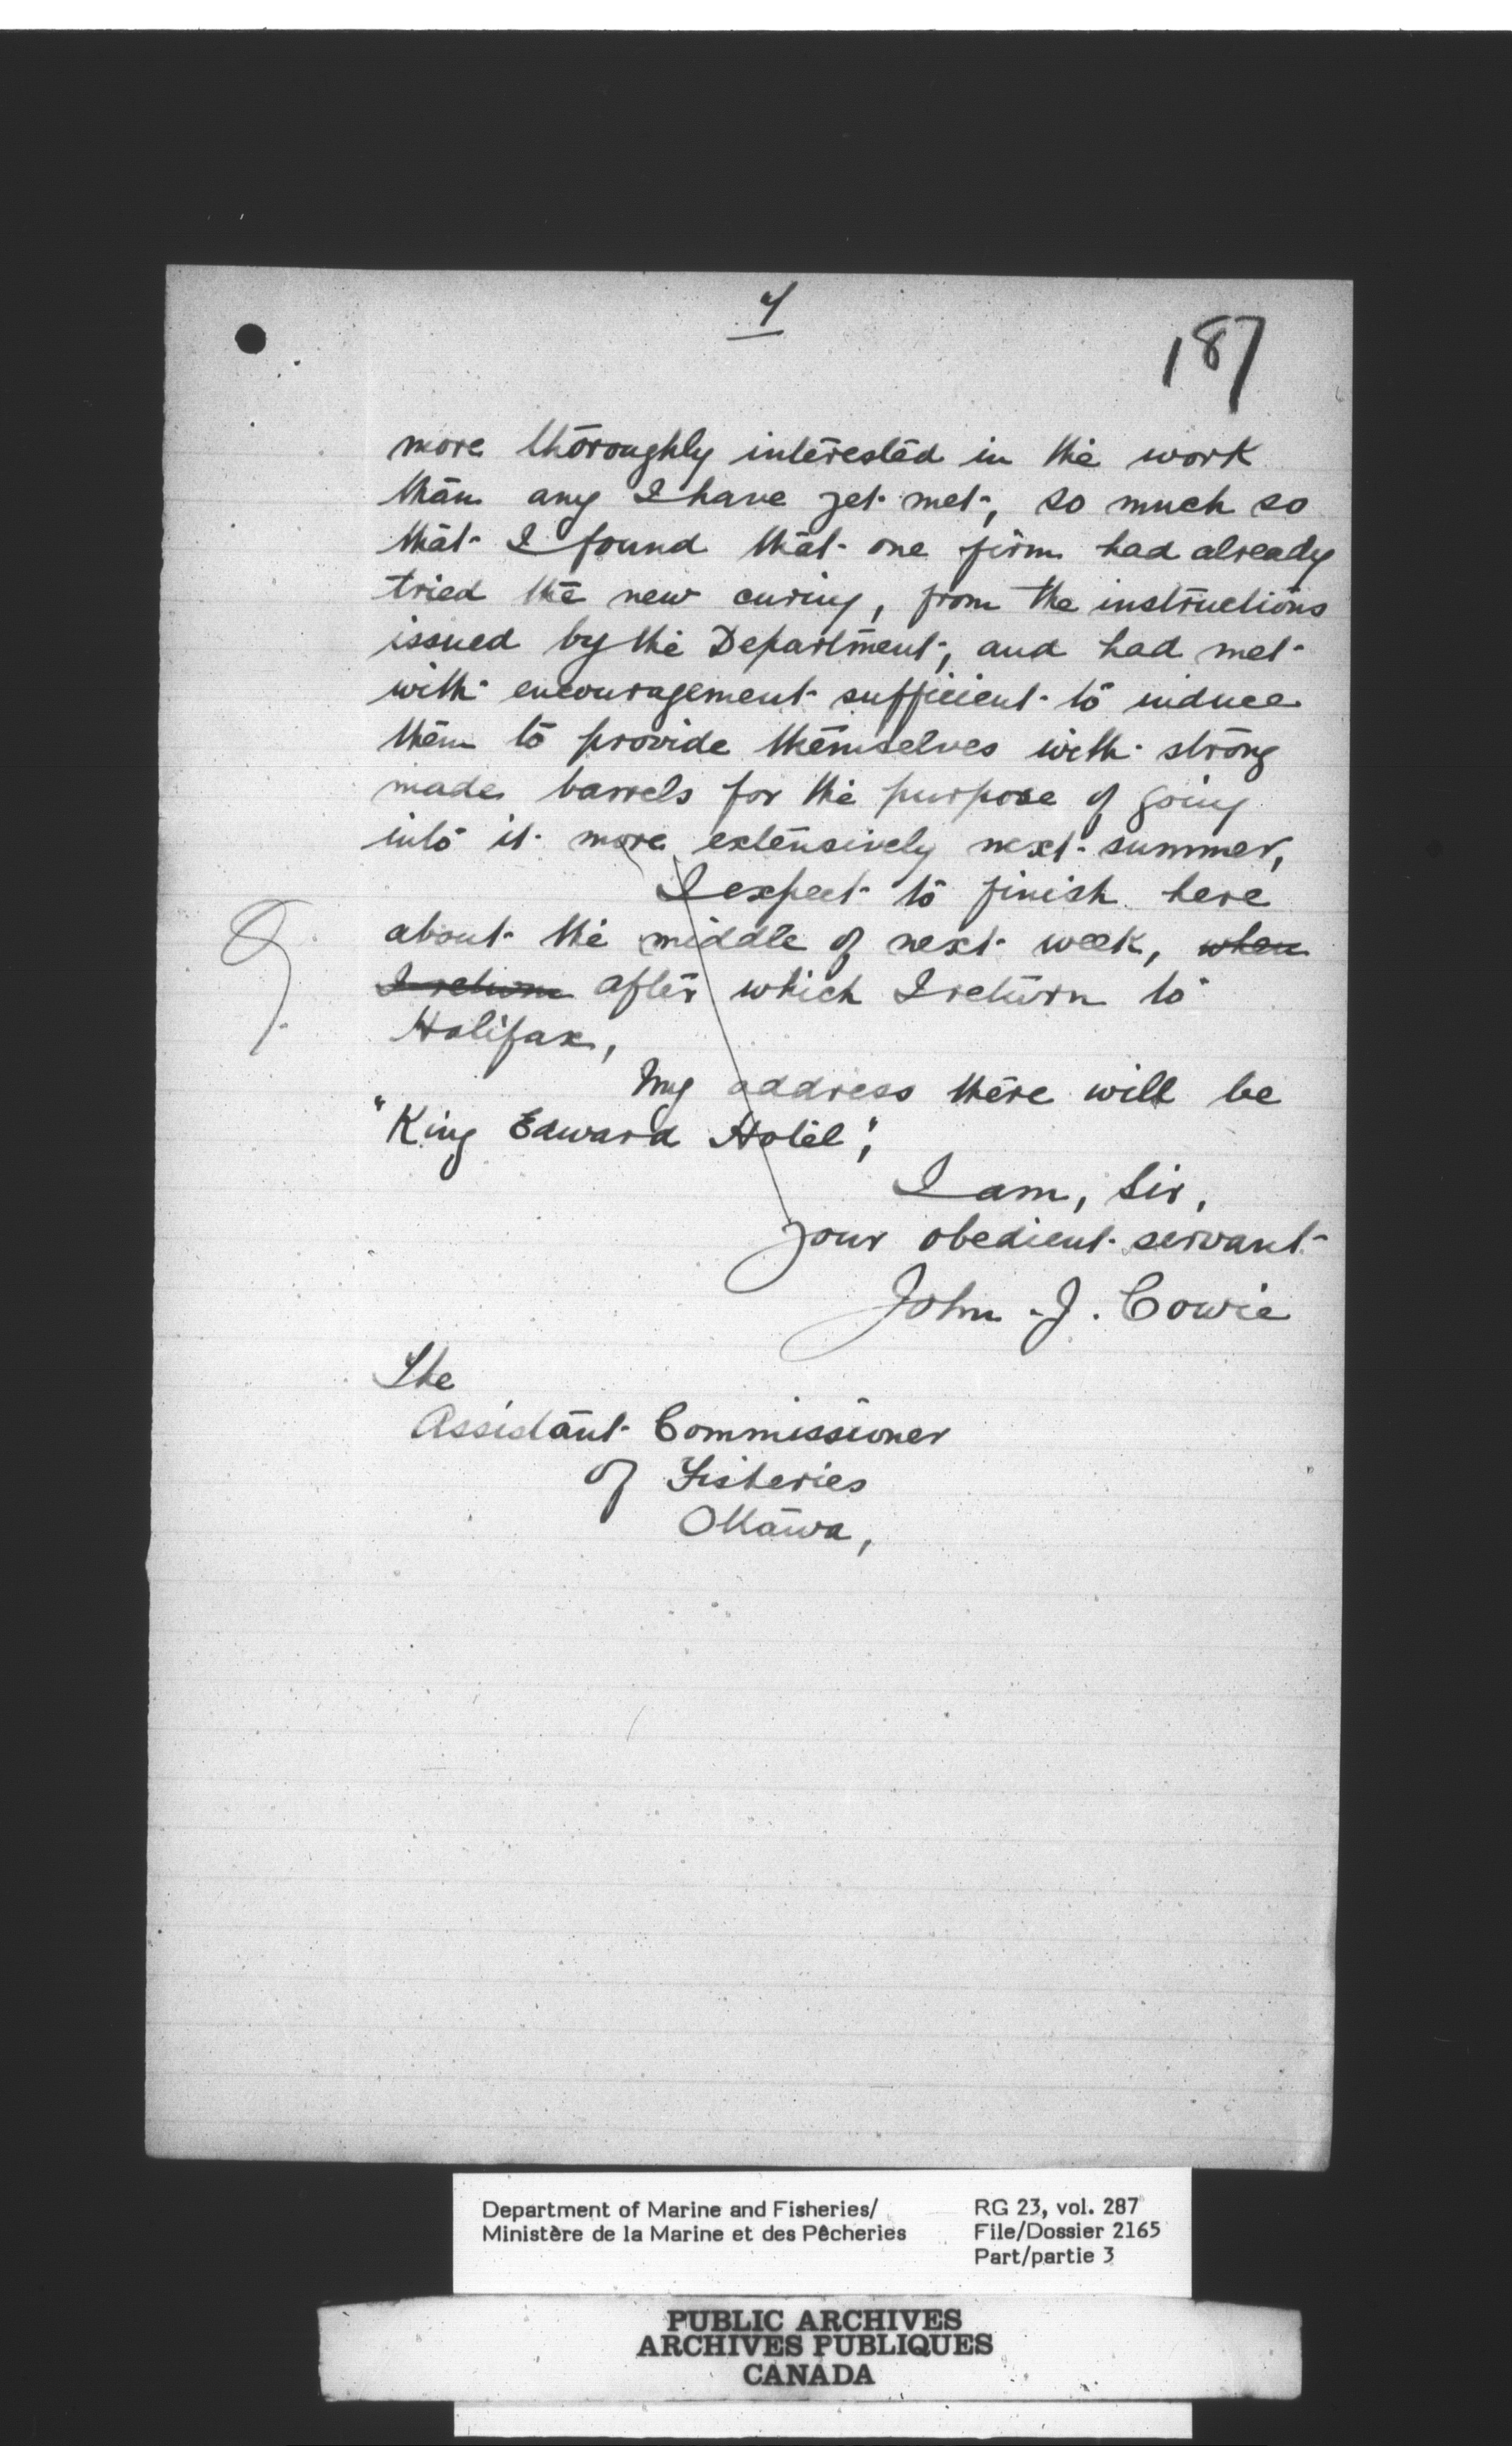 4
187
more thoroughly interested in the work
than any I have yet met, so much so
that I found that one firm had already
tried the new curing, from the instructions
issued by the Department, and had met
with encouragement sufficient to induce
them to provide themselves with strong
made barrels for the purpose of going
into it more extensively next summer,
I expect to finish here
about the middle of next week, when
I return after which I return to
Halifax,
My address there will be
"King Edward Hotel",
I am, Sir,
your obedient servant
John J. Cowie
The
Assistant Commissioner
of Fisheries
Ottawa,
Department of Marine and Fisheries/ RG 23, vol. 287
Ministère de la Marine et des Pêcheries File/Dossier 2165
Part/partie 3
PUBLIC ARCHIVES
ARCHIVES PUBLIQUES
CANADA